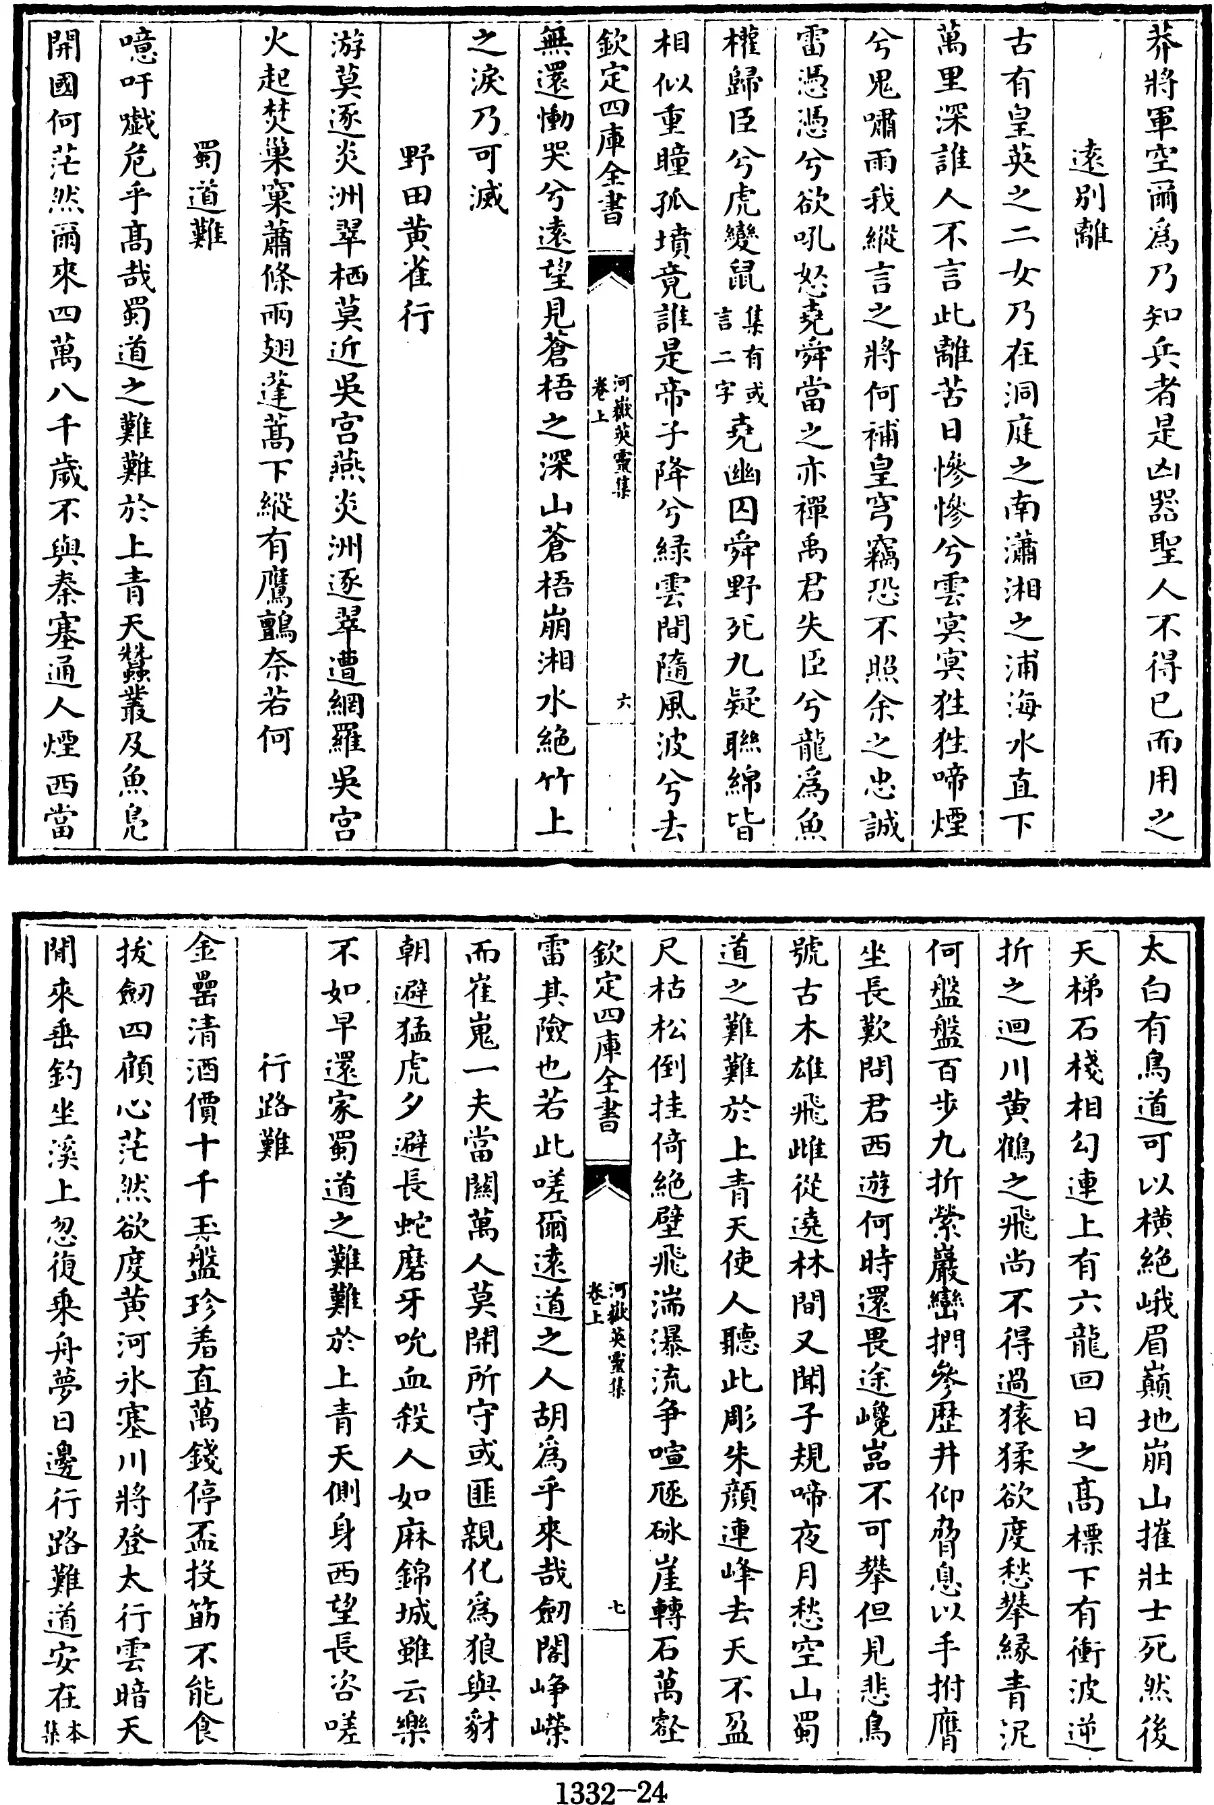 莽將軍空爾為乃知兵者是凶器聖人不得已而用之
遠别離
古有皇英之二女乃在洞庭之南瀟湘之浦海水直下
萬里深誰人不言此離苦日慘慘兮雲冥冥狌狌啼煙
兮鬼嘯雨我縱言之將何補皇穹竊恐不照余之忠誠
雷憑憑兮欲吼怒堯舜當之亦禪禹君失臣兮龍為魚
權歸臣兮虎變鼠集有或言二字堯幽囚舜野死九疑聯綿皆
相似重瞳孤墳竟誰是帝子降兮緑雲間隨風波兮去
欽定四庫全書 河嶽英靈集卷上 六
無還慟哭兮遠望見蒼梧之深山蒼梧崩湘水絶竹上
之淚乃可滅
野田黄雀行
游莫逐炎洲翠栖莫近吳宫燕炎洲逐翠遭網羅吳宫
火起焚巢窠蕭條兩翅蓬蒿下縱有鷹鸇奈若何
蜀道難
噫吁戱危乎髙哉蜀道之難難於上青天蠶叢及魚鳬
開國何茫然爾來四萬八千歲不與秦塞通人煙西當
太白有鳥道可以横絶峨眉巔地崩山摧壯士死然後
天梯石棧相勾連上有六龍回日之髙標下有衝波逆
折之迴川黄鶴之飛尚不得過猿猱欲度愁攀緣青泥
何盤盤百步九折縈巖巒捫參歴井仰脅息以手拊膺
坐長歎問君西遊何時還畏途巉嵓不可攀但見悲鳥
號古木雄飛雌從遶林間又聞子規啼夜月愁空山蜀
道之難難於上青天使人聽此彫朱顔連峰去天不盈
尺枯松倒挂倚絶壁飛湍瀑流争喧豗砯崖轉石萬壑
欽定四庫全書 河嶽英靈集卷上 七
雷其險也若此嗟爾遠道之人胡為乎來哉劒閣峥嶸
而崔嵬一夫當闗萬人莫開所守或匪親化為狼與豺
朝避猛虎夕避長蛇磨牙吮血殺人如麻錦城雖云樂
不如早還家蜀道之難難於上青天側身西望長咨嗟
行路難
金罍清酒價十千玉盤珍羞直萬錢停盃投筯不能食
拔劒四顧心茫然欲度黄河氷塞川將登太行雲暗天
閒來垂釣坐溪上忽復乗舟夢日邊行路難道安在本集
1332-24